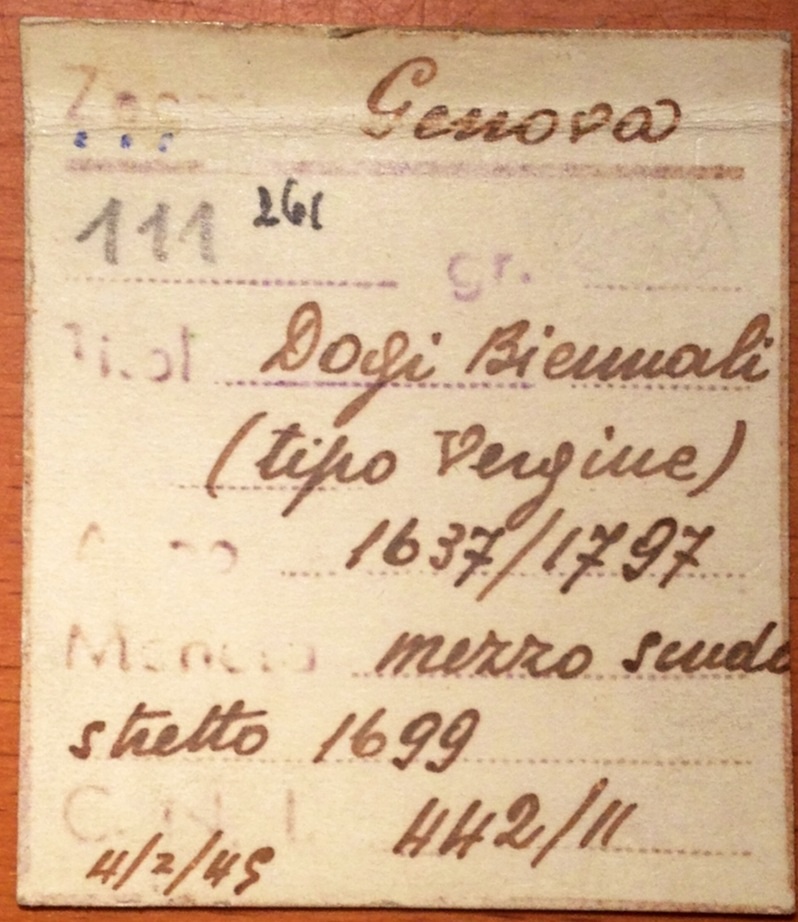 Genova
111 261
gr.
Titol Dogi Biennali
(tipo Vergine)
1637/1797
Moneta mezzo scudo
stretto 1699
C. N. I. 442/11
4/2/45